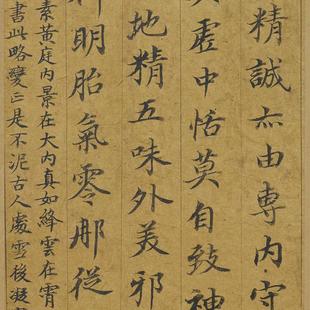 精誠亦由專內守
虛中恬莫自致神
地精五味外美邪
明胎氣零那從
素黃庭內景在大內真如絳雲在霄
書此略變正是不泥古人處雪後凝